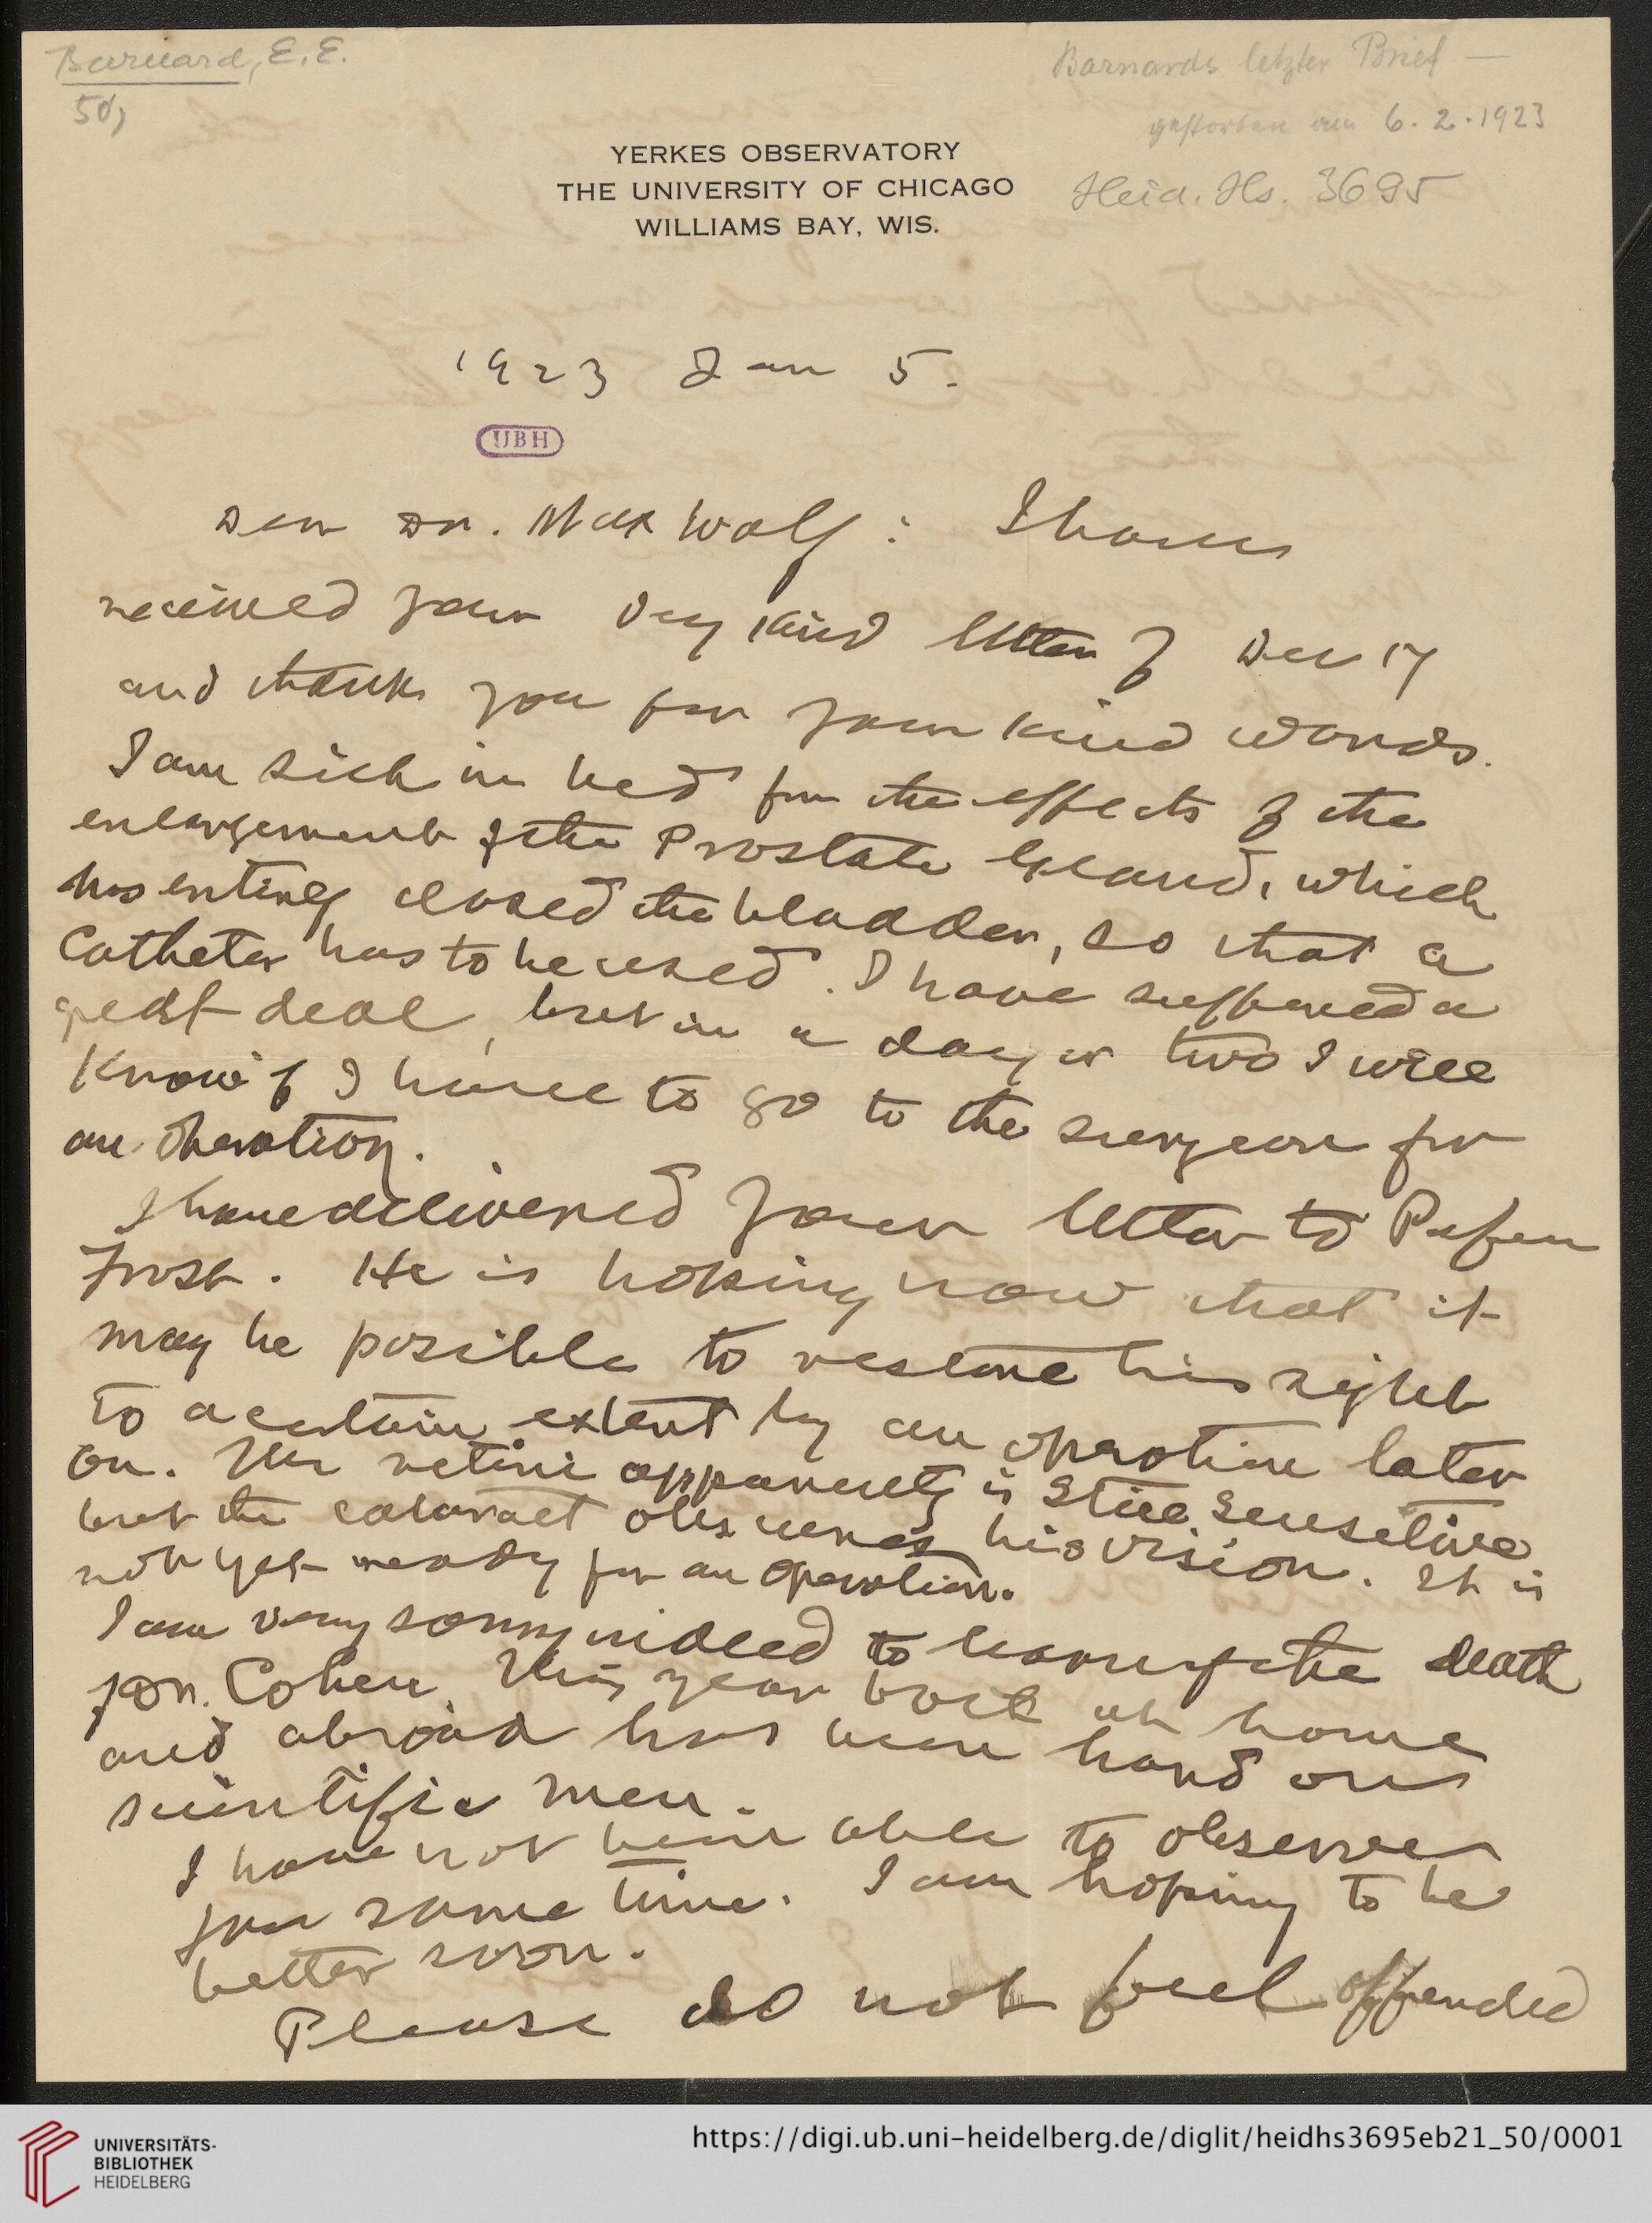 Barnard, E. E.
50)
Barnards letzter Brief —
gestorben am 6. 2. 1923
Heid. Hs. 3695
YERKES OBSERVATORY
THE UNIVERSITY OF CHICAGO
WILLIAMS BAY, WIS.
1923 Jan 5.
UBH
Dear Dr. Max Wolf: I have
received your very kind letter of Dec 17
and thank you for your kind words.
I am sick in bed from the effects of the
enlargement of the Prostate Gland, which
has entirely closed the bladder, so that a
Catheter has to be used. I have suffered a
great deal, but in a day or two I will
Know if I have to go to the surgeon for
an operation.
I have delivered your letter to Profesor
Frost. He is hoping now that it
may be posible to restore his sight
to a certain extent by an operation later
on. The retine apparently is still sensitive
but the cataract obscures his vision. It is
not yet ready for an operation.
I am very sorry indeed to learn of the death
Dr. Cohen. This year both at home
and abroad has been hard on
scientific men.
I have not been able to observe
for some time. I am hoping to be
better soon.
Please do not feel offended
UNIVERSITÄTS-
BIBLIOTHEK
HEIDELBERG
https://digi.ub.uni-heidelberg.de/diglit/heidhs3695eb21_50/0001